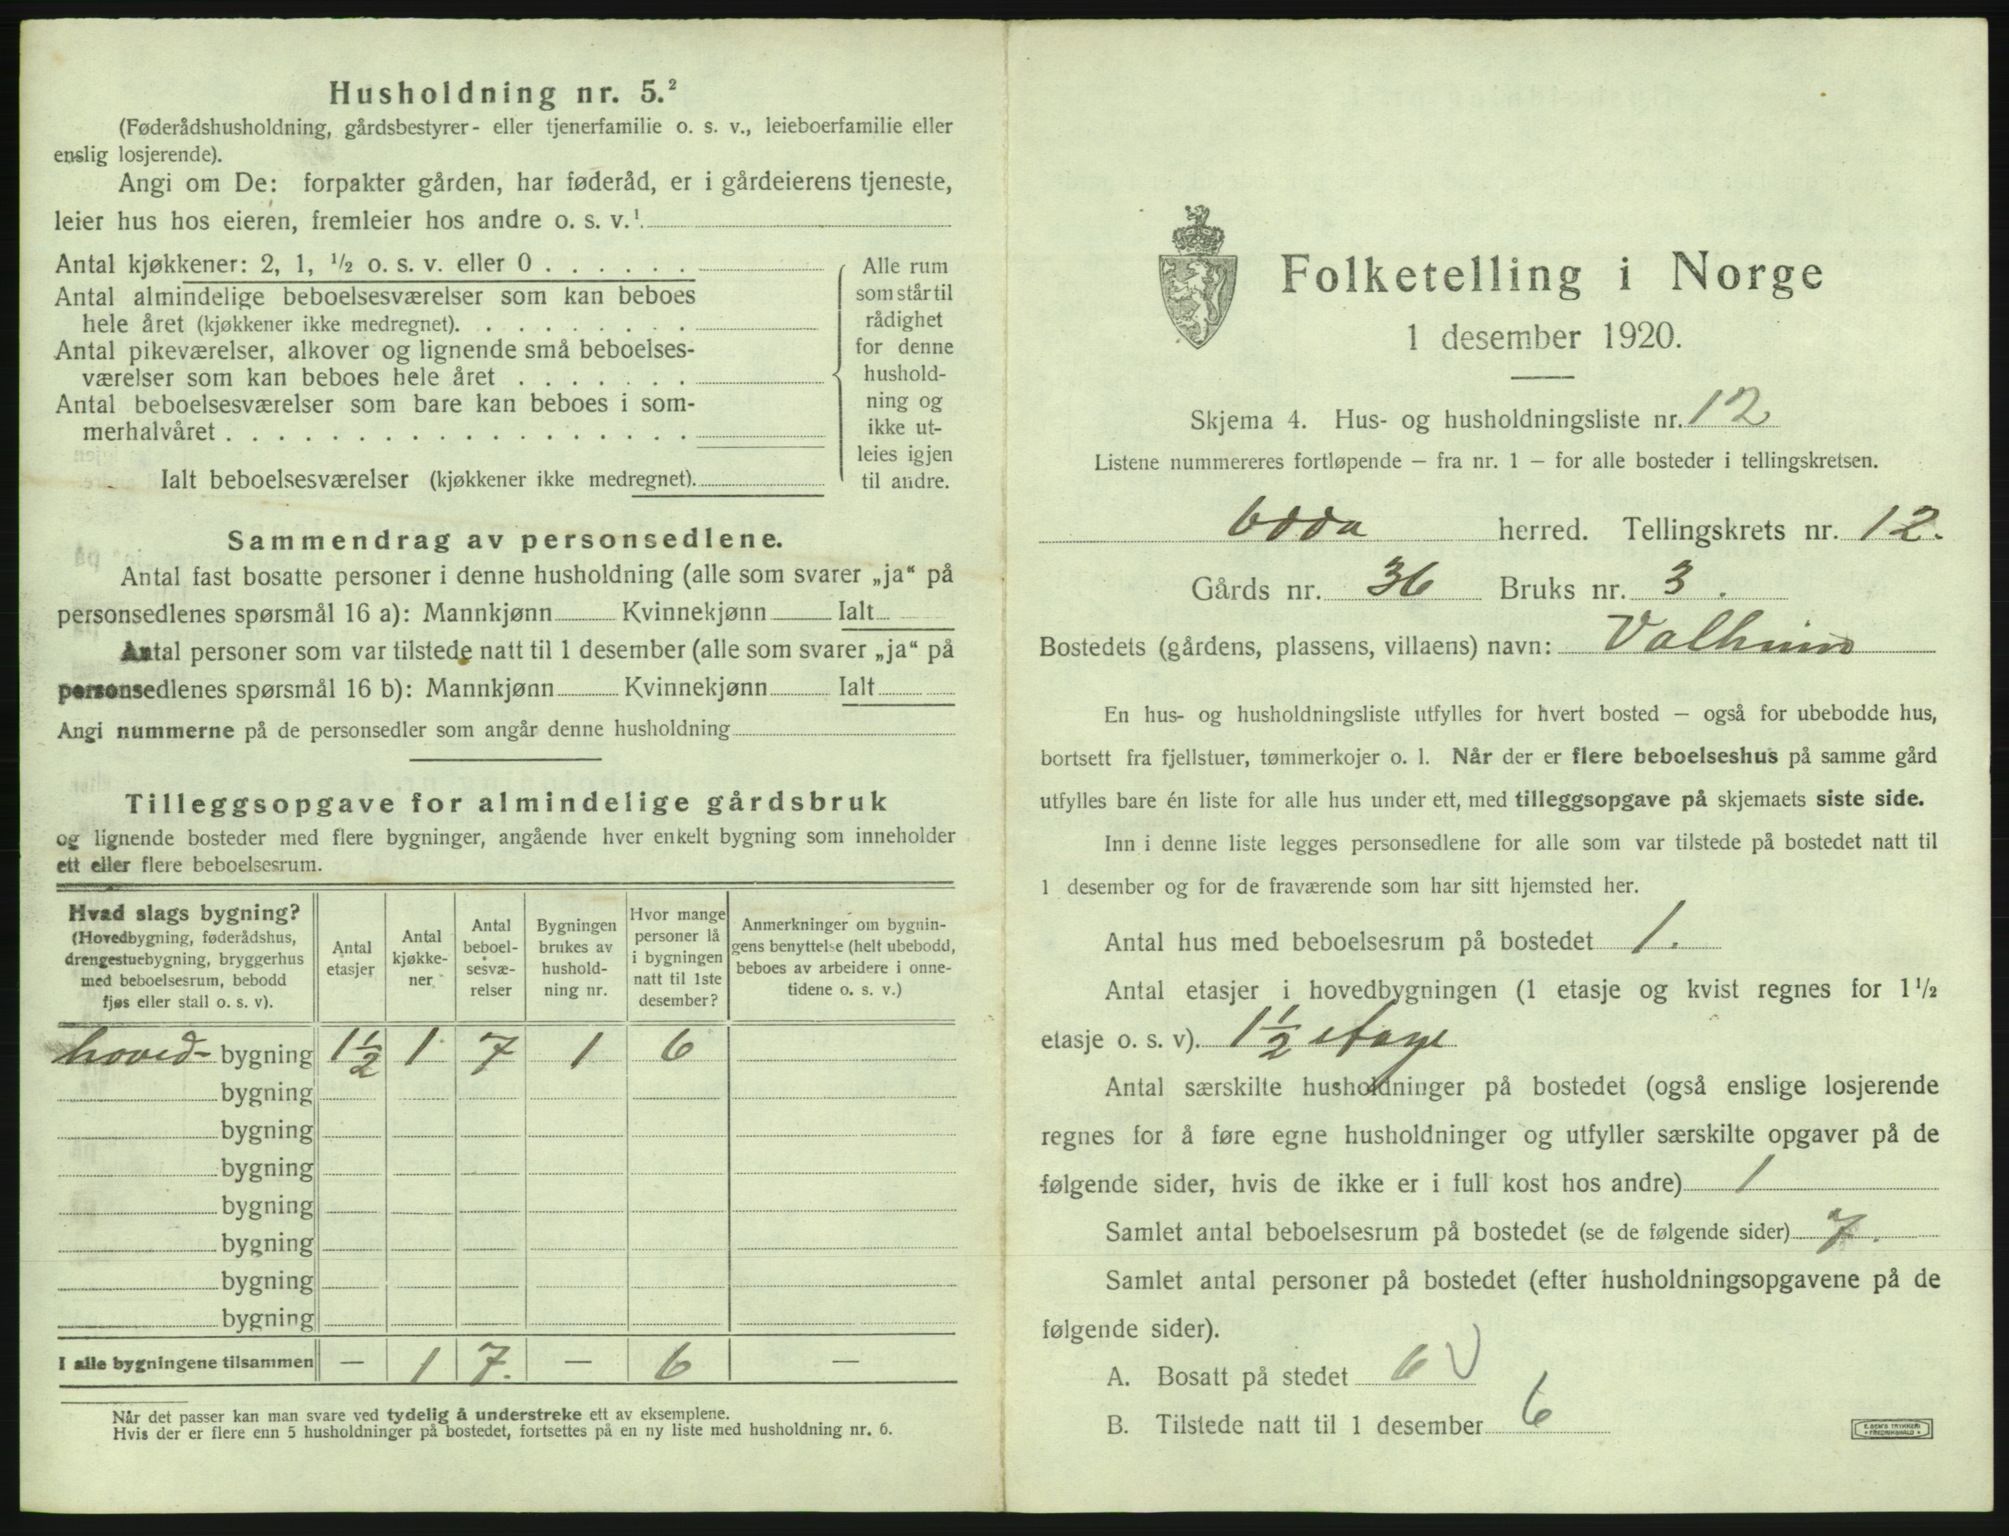 Husholdning nr. 5.²
(Føderådshusholdning, gårdsbestyrer- eller tjenerfamilie o. s. v., leieboerfamilie eller
enslig losjerende).
Angi om De: forpakter gården, har føderåd, er i gårdeierens tjeneste,
leier hus hos eieren, fremleier hos andre o. s. v.¹
Antal kjøkkener: 2, 1, ½ o. s. v. eller 0 . . . . . .
Antal almindelige beboelsesværelser som kan beboes
hele året (kjøkkener ikke medregnet). . . . . . . . .
Antal pikeværelser, alkover og lignende små beboelses-
værelser som kan beboes hele året . . . . . . .
Antal beboelsesværelser som bare kan beboes i som-
merhalvåret . . . . . . . . . . . . . . . . . .
Ialt beboelsesværelser (kjøkkener ikke medregnet).
Alle rum
som står til
rådighet
for denne
hushold-
ning og
ikke ut-
leies igjen
til andre.
Sammendrag av personsedlene.
Antal fast bosatte personer i denne husholdning (alle som svarer „ja“ på
personsedlenes spørsmål 16 a): Mannkjønn Kvinnekjønn Ialt
Antal personer som var tilstede natt til 1 desember (alle som svarer „ja“ på
personsedlenes spørsmål 16 b): Mannkjønn Kvinnekjønn Ialt
Angi nummerne på de personsedler som angår denne husholdning
Tilleggsopgave for almindelige gårdsbruk
og lignende bosteder med flere bygninger, angående hver enkelt bygning som inneholder
ett eller flere beboelsesrum.
Hvad slags bygning?
(Hovedbygning, føderådshus,
drengestuebygning, bryggerhus
med beboelsesrum, bebodd
fjøs eller stall o. s. v).
Antal
etasjer
Antal
kjøkke-
ner
Antal
beboel-
sesvæ-
relser
Bygningen
brukes av
hushold-
ning nr.
Hvor mange
personer lå
i bygningen
natt til 1ste
desember?
Anmerkninger om bygnin-
gens benyttelse (helt ubebodd,
beboes av arbeidere i onne-
tidene o. s. v.)
hoved- bygning 1½ 1 7 1 6
bygning
bygning
bygning
bygning
bygning
bygning
bygning
I alle bygningene tilsammen — 1 7. — 6 —
Når det passer kan man svare ved tydelig å understreke ett av eksemplene.
Hvis der er flere enn 5 husholdninger på bostedet, fortsettes på en ny liste med husholdning nr. 6.
Folketelling i Norge
1 desember 1920.
Skjema 4. Hus- og husholdningsliste nr. 12
Listene nummereres fortløpende — fra nr. 1 — for alle bosteder i tellingskretsen.
Odda herred. Tellingskrets nr. 12.
Gårds nr. 36 Bruks nr. 3.
Bostedets (gårdens, plassens, villaens) navn:
En hus- og husholdningsliste utfylles for hvert bosted — også for ubebodde hus,
bortsett fra fjellstuer, tømmerkojer o. l. Når der er flere beboelseshus på samme gård
utfylles bare én liste for alle hus under ett, med tilleggsopgave på skjemaets siste side.
Inn i denne liste legges personsedlene for alle som var tilstede på bostedet natt til
1 desember og for de fraværende som har sitt hjemsted her.
Antal hus med beboelsesrum på bostedet 1.
Antal etasjer i hovedbygningen (1 etasje og kvist regnes for 1½
etasje o. s. v). 1½ etage
Antal særskilte husholdninger på bostedet (også enslige losjerende
regnes for å føre egne husholdninger og utfyller særskilte opgaver på de
følgende sider, hvis de ikke er i full kost hos andre) 1
Samlet antal beboelsesrum på bostedet (se de følgende sider) 7.
Samlet antal personer på bostedet (efter husholdningsopgavene på de
følgende sider).
A. Bosatt på stedet 6
B. Tilstede natt til 1 desember 6